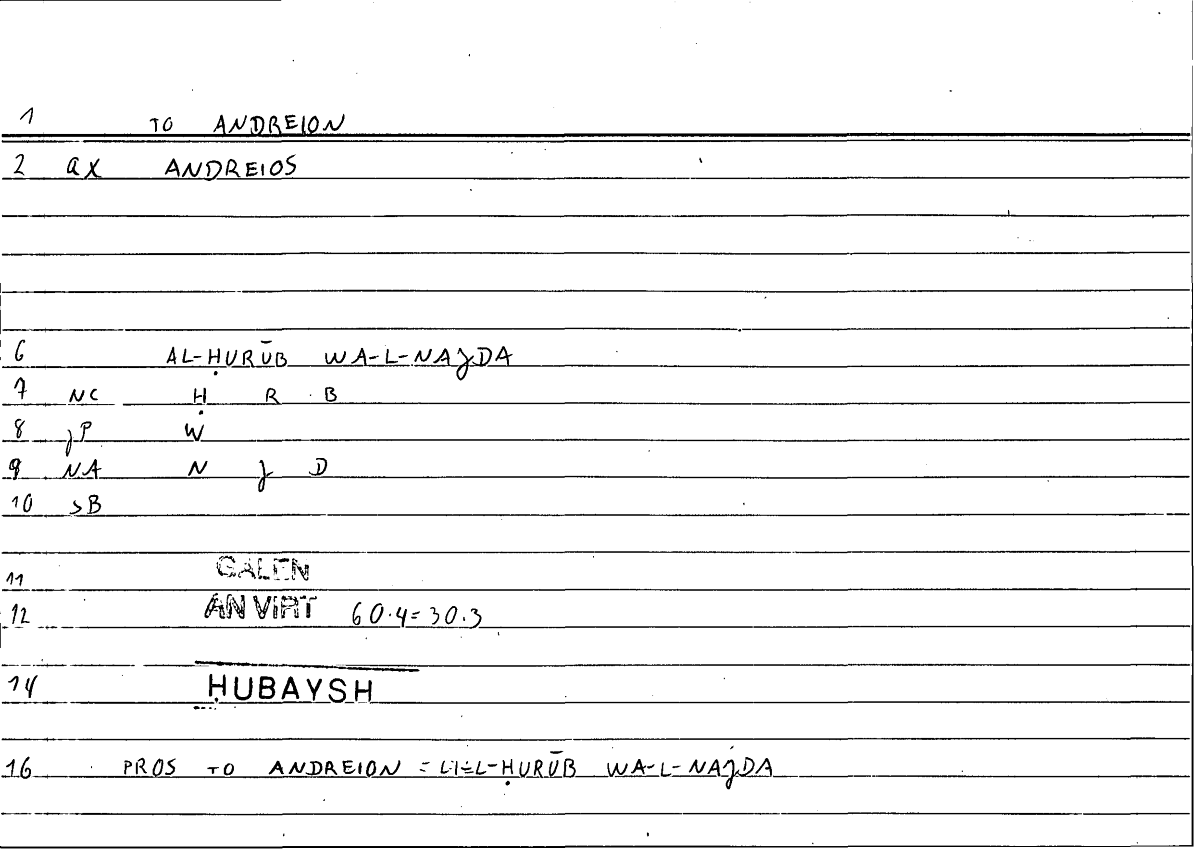 1 TO ANDREION
2 ax ANDREIOS
6 AL-ḤURŪB WA-L-NAJDA
7 NC Ḥ R B
8 JP W
9 NA N J D
10 SB
11 GALEN
12 AN VIRT 60.4=30.3
14 ḤUBAYSH
16 PROS TO ANDREION = LI-L-ḤURŪB WA-L-NAJDA